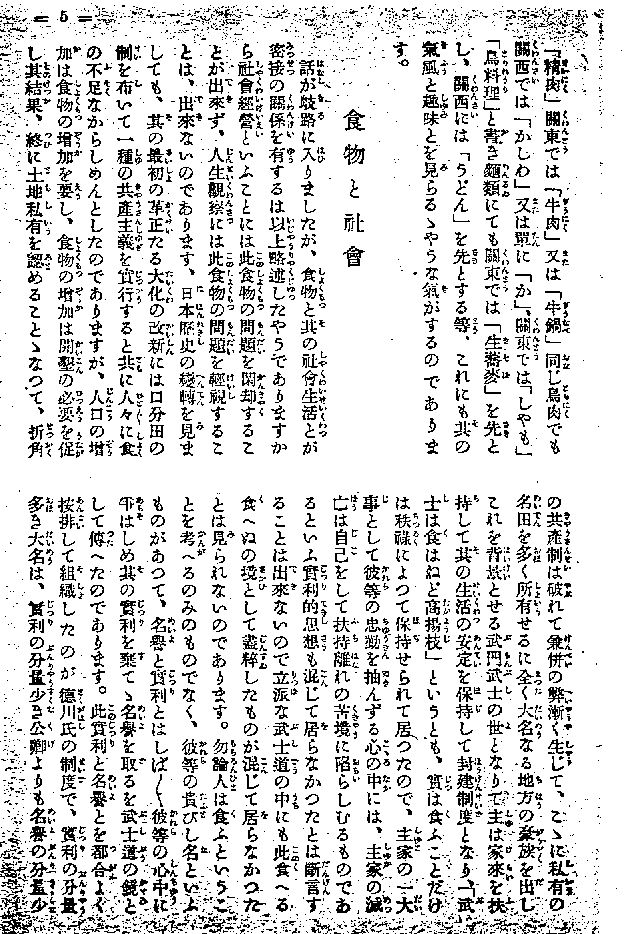 「精肉」關東では「牛肉」又は「牛鍋」同じ鳥肉でも
關西では「かしわ」又は單に「か」、關東では「しやも」
「鳥料理」と書き麵類にても關東では「生蕎麥」を先と
し、關西には「うどん」を先とする等、これにも其の
氣風と趣味とを見らるゝやうな氣がするのでありま
す。
食物と社會
話が岐路に入りましたが、食物と其の社會生活とが
密接の關係を有するは以上略述したやうでありますか
ら社會經營といふことには此食物の問題を閑却するこ
とが出來ず、人生觀察には此食物の問題を輕視するこ
とは、出來ないのであります、日本歷史の變轉を見ま
しても、其の最初の革正たる大化の改新には口分田の
制を布いて一種の共產主義を實行すると共に人々に食
の不足なからしめんとしたのでありますが、人口の增
加は食物の增加を要し、食物の增加は開墾の必要を促
し其結果、終に土地私有を認めることゝなつて、折角
の共產制は破れて兼併の弊漸く生じて、こゝに私有の
名田を多く所有せるに全く大名なる地方の豪族を出し
これを背景とせる武門武士の世となりて主は家來を扶
持して其の生活の安定を保持して封建制度となり、「武
士は食はねど高揚枝」というとも、實は食ふことだけ
は秩祿によつて保持せられて居つたので、主家の一大
事として彼等の忠勤を抽んずる心の中には、主家の滅
亡は自己をして扶持離れの苦境に陷らしむるものであ
るといふ實利的思想も混じて居らなかつたとは斷言す
ることは出來ないので立派な武士道の中にも此食へる
食へぬの境として盡粹したものが混じて居らなかつた
とは見られないのであります。勿論人は食ふといふこ
とを考へるのみのものでなく、彼等の貴びし名といふ
ものがあつて、名譽と實利とはしば〳〵彼等の心中に
爭はしめ其の實利を棄てゝ名譽を取るを武士道の鏡と
して傳へたのであります。此實利と名譽とを都合よく
按排して組織したのが德川氏の制度で、實利の分量
多き大名は、實利の分量少き公卿よりも名譽の分量少
= 5 =